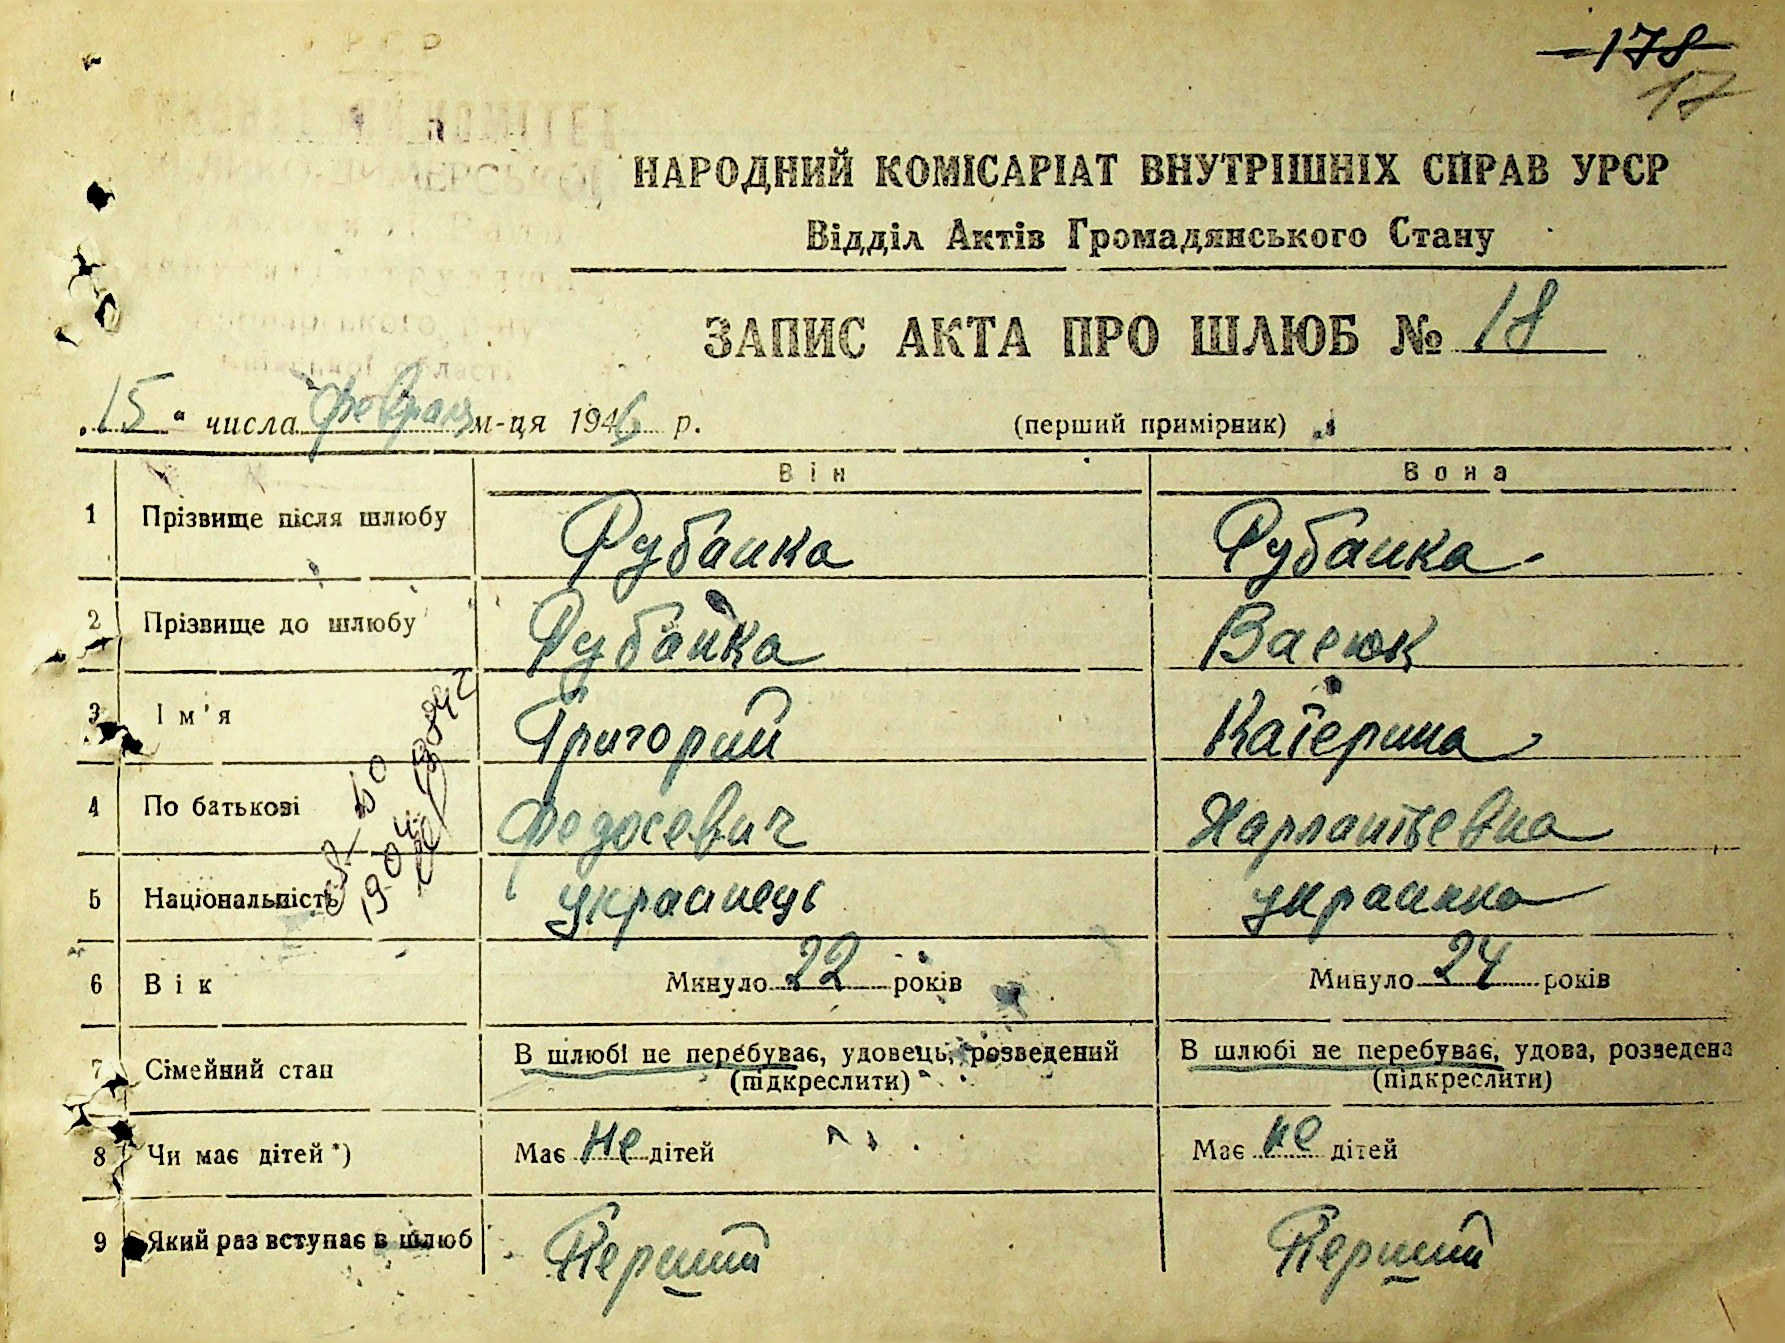 178
17
НАРОДНИЙ КОМІСАРІАТ ВНУТРІШНІХ СПРАВ УРСР
Відділ Актів Громадянського Стану
ЗАПИС АКТА ПРО ШЛЮБ № 18
„15“ числа февраля м-ця 1946 р. (перший примірник)
Він Вона
1 Прізвище після шлюбу Рубанка Рубанка
2 Прізвище до шлюбу Рубанка Васюк
3 Ім'я Григорий Катерина
4 По батькові Федосевич Харлантьевна
5 Національність украинець украинка
6 Вік Минуло 22 років Минуло 24 років
7 Сімейний стан В шлюбі не перебуває, удовець, розведений В шлюбі не перебуває, удова, розведена
(підкреслити) (підкреслити)
8 Чи має дітей *) Має не дітей Має не дітей
9 Який раз вступає в шлюб Перший Перший